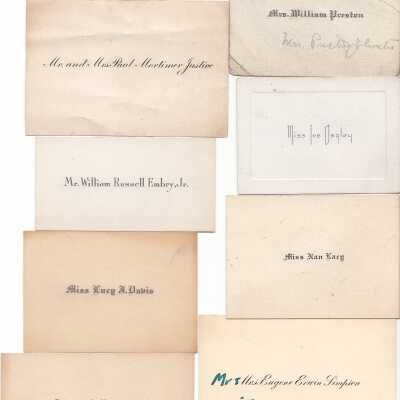 Mr. and Mrs. Paul Mortimer Justice
Mr. William Russell Embry, Jr.
Miss Lucy J. Davis
Mrs. William Preston
Mrs.
Miss Sue Dagley
Miss Nan Lacy
Mrs Mrs. Eugene Erwin Simpson